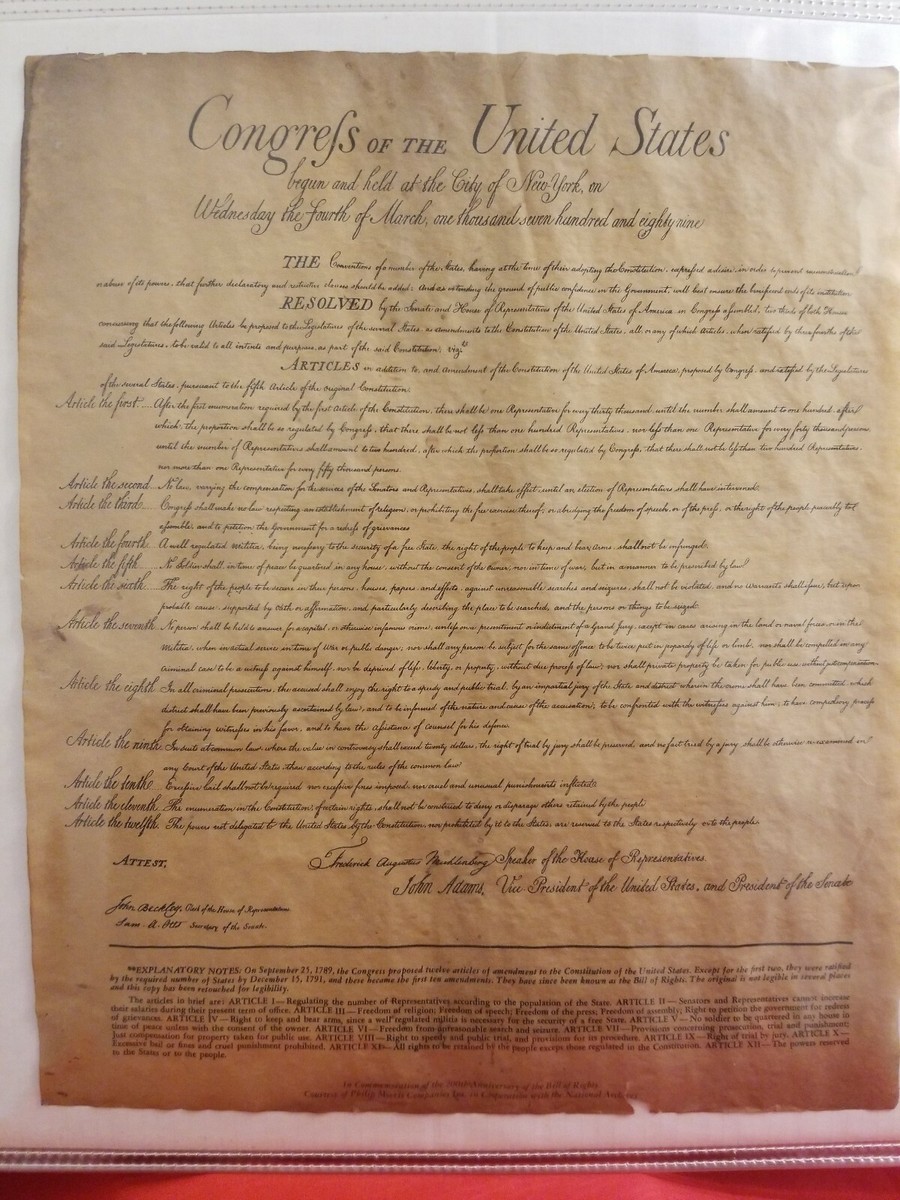 Congreſs OF THE United States
begun and held at the City of New-York, on
Wednesday the Fourth of March, one thousand seven hundred and eighty nine
THE Conventions of a number of the States, having at the time of their adopting the Constitution, expreſsed a desire, in order to prevent misconstruction
or abuse of its powers, that further declaratory and restrictive clauses should be added: And as extending the ground of public confidence in the Government, will best ensure the beneficent ends of its institution
RESOLVED by the Senate and House of Representatives of the United States of America, in Congreſs aſsembled, two thirds of both Houses
concurring that the following Articles be proposed to the Legislatures of the several States, as amendments to the Constitution of the United States, all, or any of which Articles, when ratified by three fourths of the
said Legislatures, to be valid to all intents and purposes, as part of the said Constitution; vizt
ARTICLES in addition to, and Amendment of the Constitution of the United States of America, proposed by Congreſs, and ratified by the Legislatures
of the several States, pursuant to the fifth Article of the original Constitution.
Article the first.... After the first enumeration required by the first Article of the Constitution, there shall be one Representative for every thirty thousand, until the number shall amount to one hundred, after
which, the proportion shall be so regulated by Congreſs, that there shall be not leſs than one hundred Representatives, nor leſs than one Representative for every forty thousand persons,
until the number of Representatives shall amount to two hundred, after which the proportion shall be so regulated by Congreſs, that there shall not be leſs than two hundred Representatives,
nor more than one Representative for every fifty thousand persons.
Article the second... No law, varying the compensation for the services of the Senators and Representatives, shall take effect, until an election of Representatives shall have intervened.
Article the third... Congreſs shall make no law respecting an establishment of religion, or prohibiting the free exercise thereof; or abridging the freedom of speech, or of the preſs, or the right of the people peaceably to
aſsemble, and to petition the Government for a redreſs of grievances
Article the fourth. A well regulated Militia, being neceſsary to the security of a free State, the right of the people to keep and bear Arms, shall not be infringed.
Article the fifth... No Soldier shall, in time of peace be quartered in any house, without the consent of the Owner, nor in time of war, but in a manner to be prescribed by law.
Article the sixth... The right of the people to be secure in their persons, houses, papers, and effects, against unreasonable searches and seizures, shall not be violated, and no Warrants shall iſsue, but upon
probable cause, supported by Oath or affirmation, and particularly describing the place to be searched, and the persons or things to be seized.
Article the seventh. No person shall be held to answer for a capital, or otherwise infamous crime, unleſs on a presentment or indictment of a Grand Jury, except in cases arising in the land or naval forces, or in the
Militia, when in actual service in time of War or public danger; nor shall any person be subject for the same offence to be twice put in jeopardy of life or limb, nor shall be compelled in any
criminal case to be a witneſs against himself, nor be deprived of life, liberty, or property, without due proceſs of law; nor shall private property be taken for public use without just compensation.
Article the eighth. In all criminal prosecutions, the accused shall enjoy the right to a speedy and public trial, by an impartial jury of the State and district wherein the crime shall have been committed, which
district shall have been previously ascertained by law, and to be informed of the nature and cause of the accusation; to be confronted with the witneſses against him; to have compulsory proceſs
for obtaining witneſses in his favor, and to have the Aſsistance of Counsel for his defence.
Article the ninth. In suits at common law, where the value in controversy shall exceed twenty dollars, the right of trial by jury shall be preserved, and no fact tried by a jury shall be otherwise re-examined in
any Court of the United States, than according to the rules of the common law.
Article the tenth. Exceſsive bail shall not be required nor exceſsive fines imposed, nor cruel and unusual punishments inflicted.
Article the eleventh. The enumeration in the Constitution, of certain rights, shall not be construed to deny or disparage others retained by the people
Article the twelfth. The powers not delegated to the United States by the Constitution, nor prohibited by it to the States, are reserved to the States respectively or to the people.
ATTEST,
Frederick Augustus Muhlenberg Speaker of the House of Representatives.
John Adams, Vice President of the United States, and President of the Senate
John Beckley, Clerk of the House of Representatives.
Sam. A. Otis Secretary of the Senate.
**EXPLANATORY NOTES: On September 25, 1789, the Congress proposed twelve articles of amendment to the Constitution of the United States. Except for the first two, they were ratified
by the required number of States by December 15, 1791, and these became the first ten amendments. They have since been known as the Bill of Rights. The original is not legible in several places
and this copy has been retouched for legibility.
The articles in brief are: ARTICLE I—Regulating the number of Representatives according to the population of the State. ARTICLE II—Senators and Representatives cannot increase
their salaries during their present term of office. ARTICLE III—Freedom of religion; Freedom of speech; Freedom of the press; Freedom of assembly; Right to petition the government for redress
of grievances. ARTICLE IV—Right to keep and bear arms, since a well regulated militia is necessary for the security of a free State. ARTICLE V—No soldier to be quartered in any house in
time of peace unless with the consent of the owner. ARTICLE VI—Freedom from unreasonable search and seizure. ARTICLE VII—Provisions concerning prosecution, trial and punishment;
Just compensation for property taken for public use. ARTICLE VIII—Right to speedy and public trial, and provisions for its procedure. ARTICLE IX—Right of trial by jury. ARTICLE X—
Excessive bail or fines and cruel punishment prohibited. ARTICLE XI—All rights to be retained by the people except those regulated in the Constitution. ARTICLE XII—The powers reserved
to the States or to the people.
In Commemoration of the 200th Anniversary of the Bill of Rights
Courtesy of Philip Morris Companies Inc. in Cooperation with the National Archives